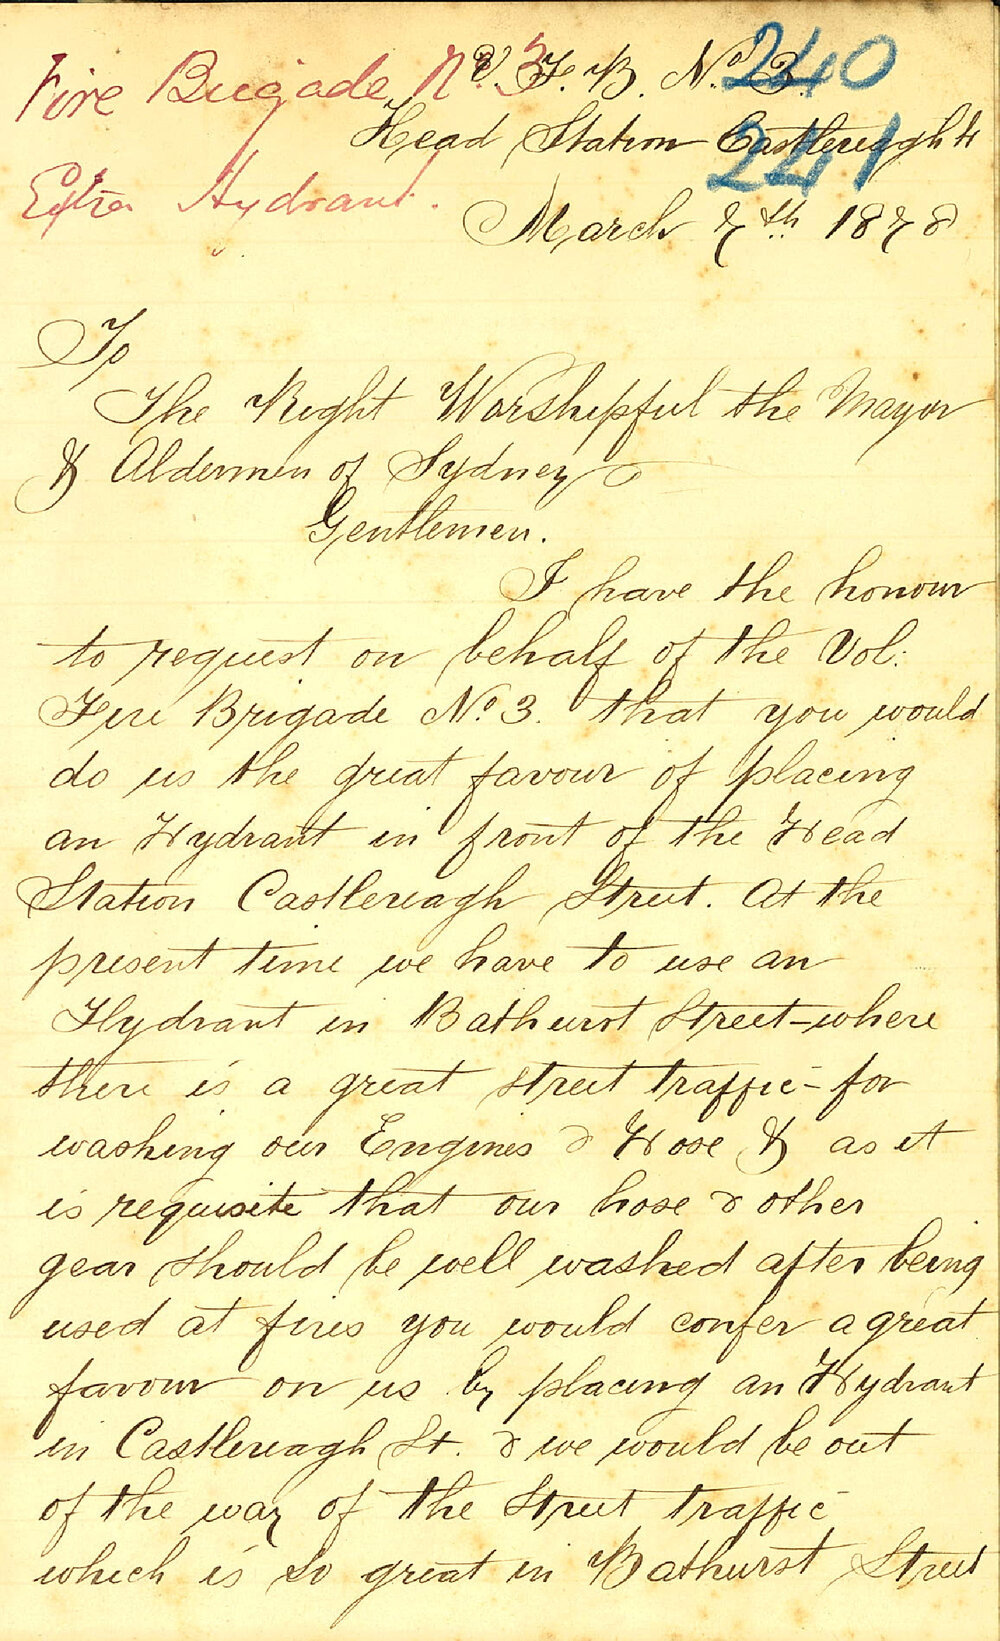 Fire Brigade No 3
Extra Hydrant.
240
241
V. F. B. No. 3.
Head Station Castlereagh St
March 7th 1878
To
The Right Worshipful the Mayor
& Aldermen of Sydney
Gentlemen.
I have the honour
to request on behalf of the Vol:
Fire Brigade No. 3. that you would
do us the great favour of placing
an Hydrant in front of the Head
Station Castlereagh Street. At the
present time we have to use an
Hydrant in Bathurst Street – where
there is a great street traffic – for
washing our Engines & Hose & as it
is requisite that our hose & other
gear should be well washed after being
used at fires you would confer a great
favour on us by placing an Hydrant
in Castlereagh St. & we would be out
of the way of the Street traffic
which is so great in Bathurst Street